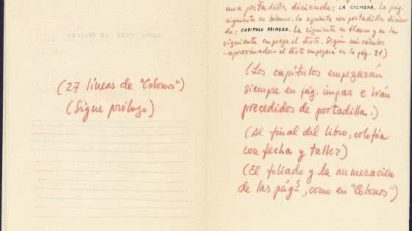 (27 líneas de "Colonos")
(Sigue prólogo)
una portadilla diciendo: LA COLMENA, la pág.
siguiente en blanco, la siguiente con portadilla dicien-
do: CAPÍTULO PRIMERO, la siguiente en blanco y en la
siguiente empieza el texto. Según mis cálculos
-aproximados- el texto empezará en la pág. 21)
(Los capítulos empezarán
siempre en pág. impar e irán
precedidos de portadilla.)
(Al final del libro, colofón
con fecha y taller)
(El foliado y la numeración
de las págs, como en "Colonos")